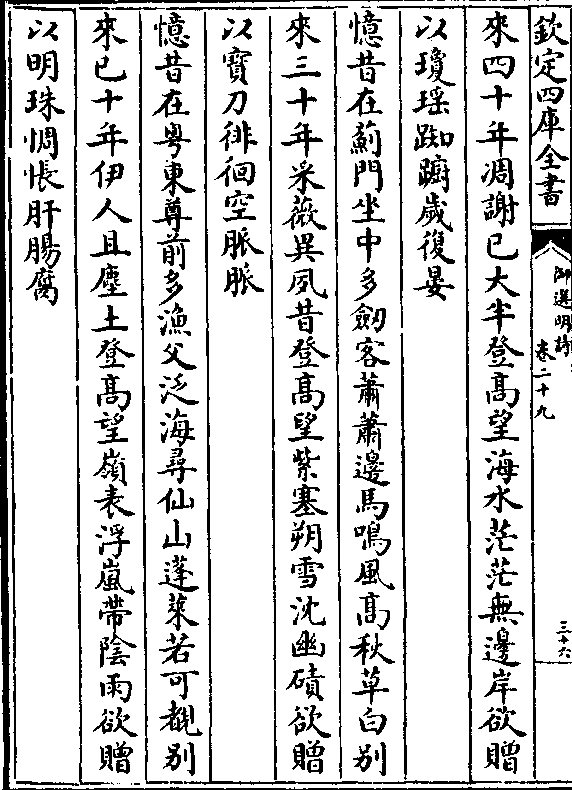 欽定四庫全書
御選明詩
卷二十九
三十六
來四十年凋謝已大半登高望海水茫茫無邊岸欲贈
以瓊瑤踟躕歲復晏
憶昔在薊門坐中多劒客蕭蕭邊馬鳴風高秋草白别
來三十年采薇異夙昔登高望紫塞朔雪沈幽磧欲贈
以寶刀徘徊空脈脈
憶昔在粤東尊前多漁父泛海尋仙山蓬萊若可覩别
來已十年伊人且塵土登高望嶺表浮嵐帶陰雨欲贈
以明珠惆悵肝腸腐